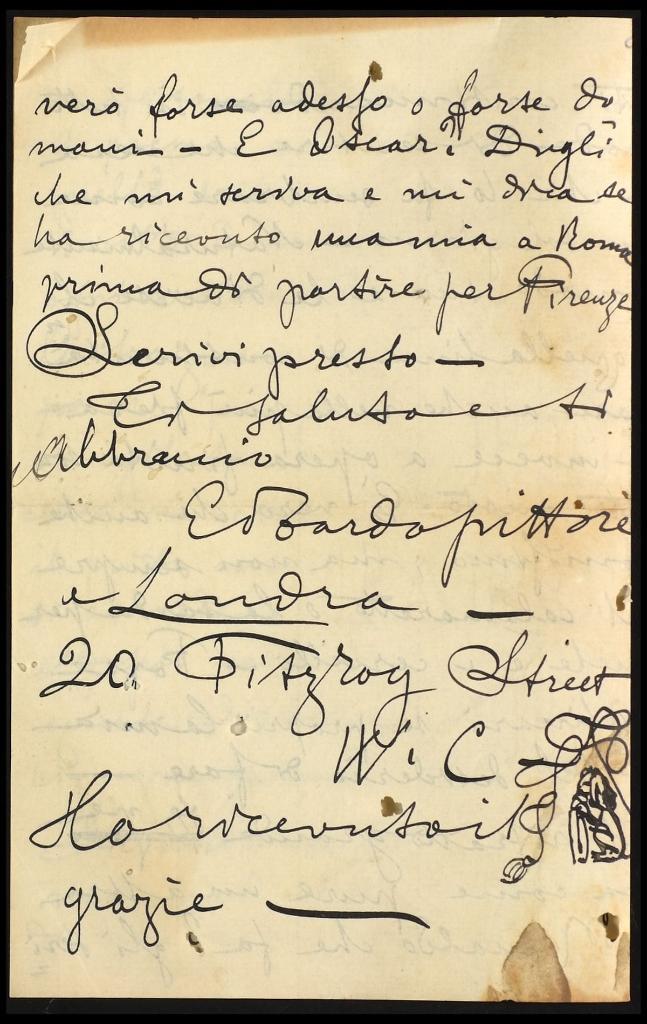 verò forse adesso o forse do
mani — E Oscar? Digli
che mi scriva e mi dica se
ha ricevuto una mia a Roma
prima di partire per Firenze
Scrivi presto —
Ti saluto e ti
Abbraccio
Edoardo pittore
a Londra —
20, Fitzroy Street
W. C
Ho ricevuto il
grazie —